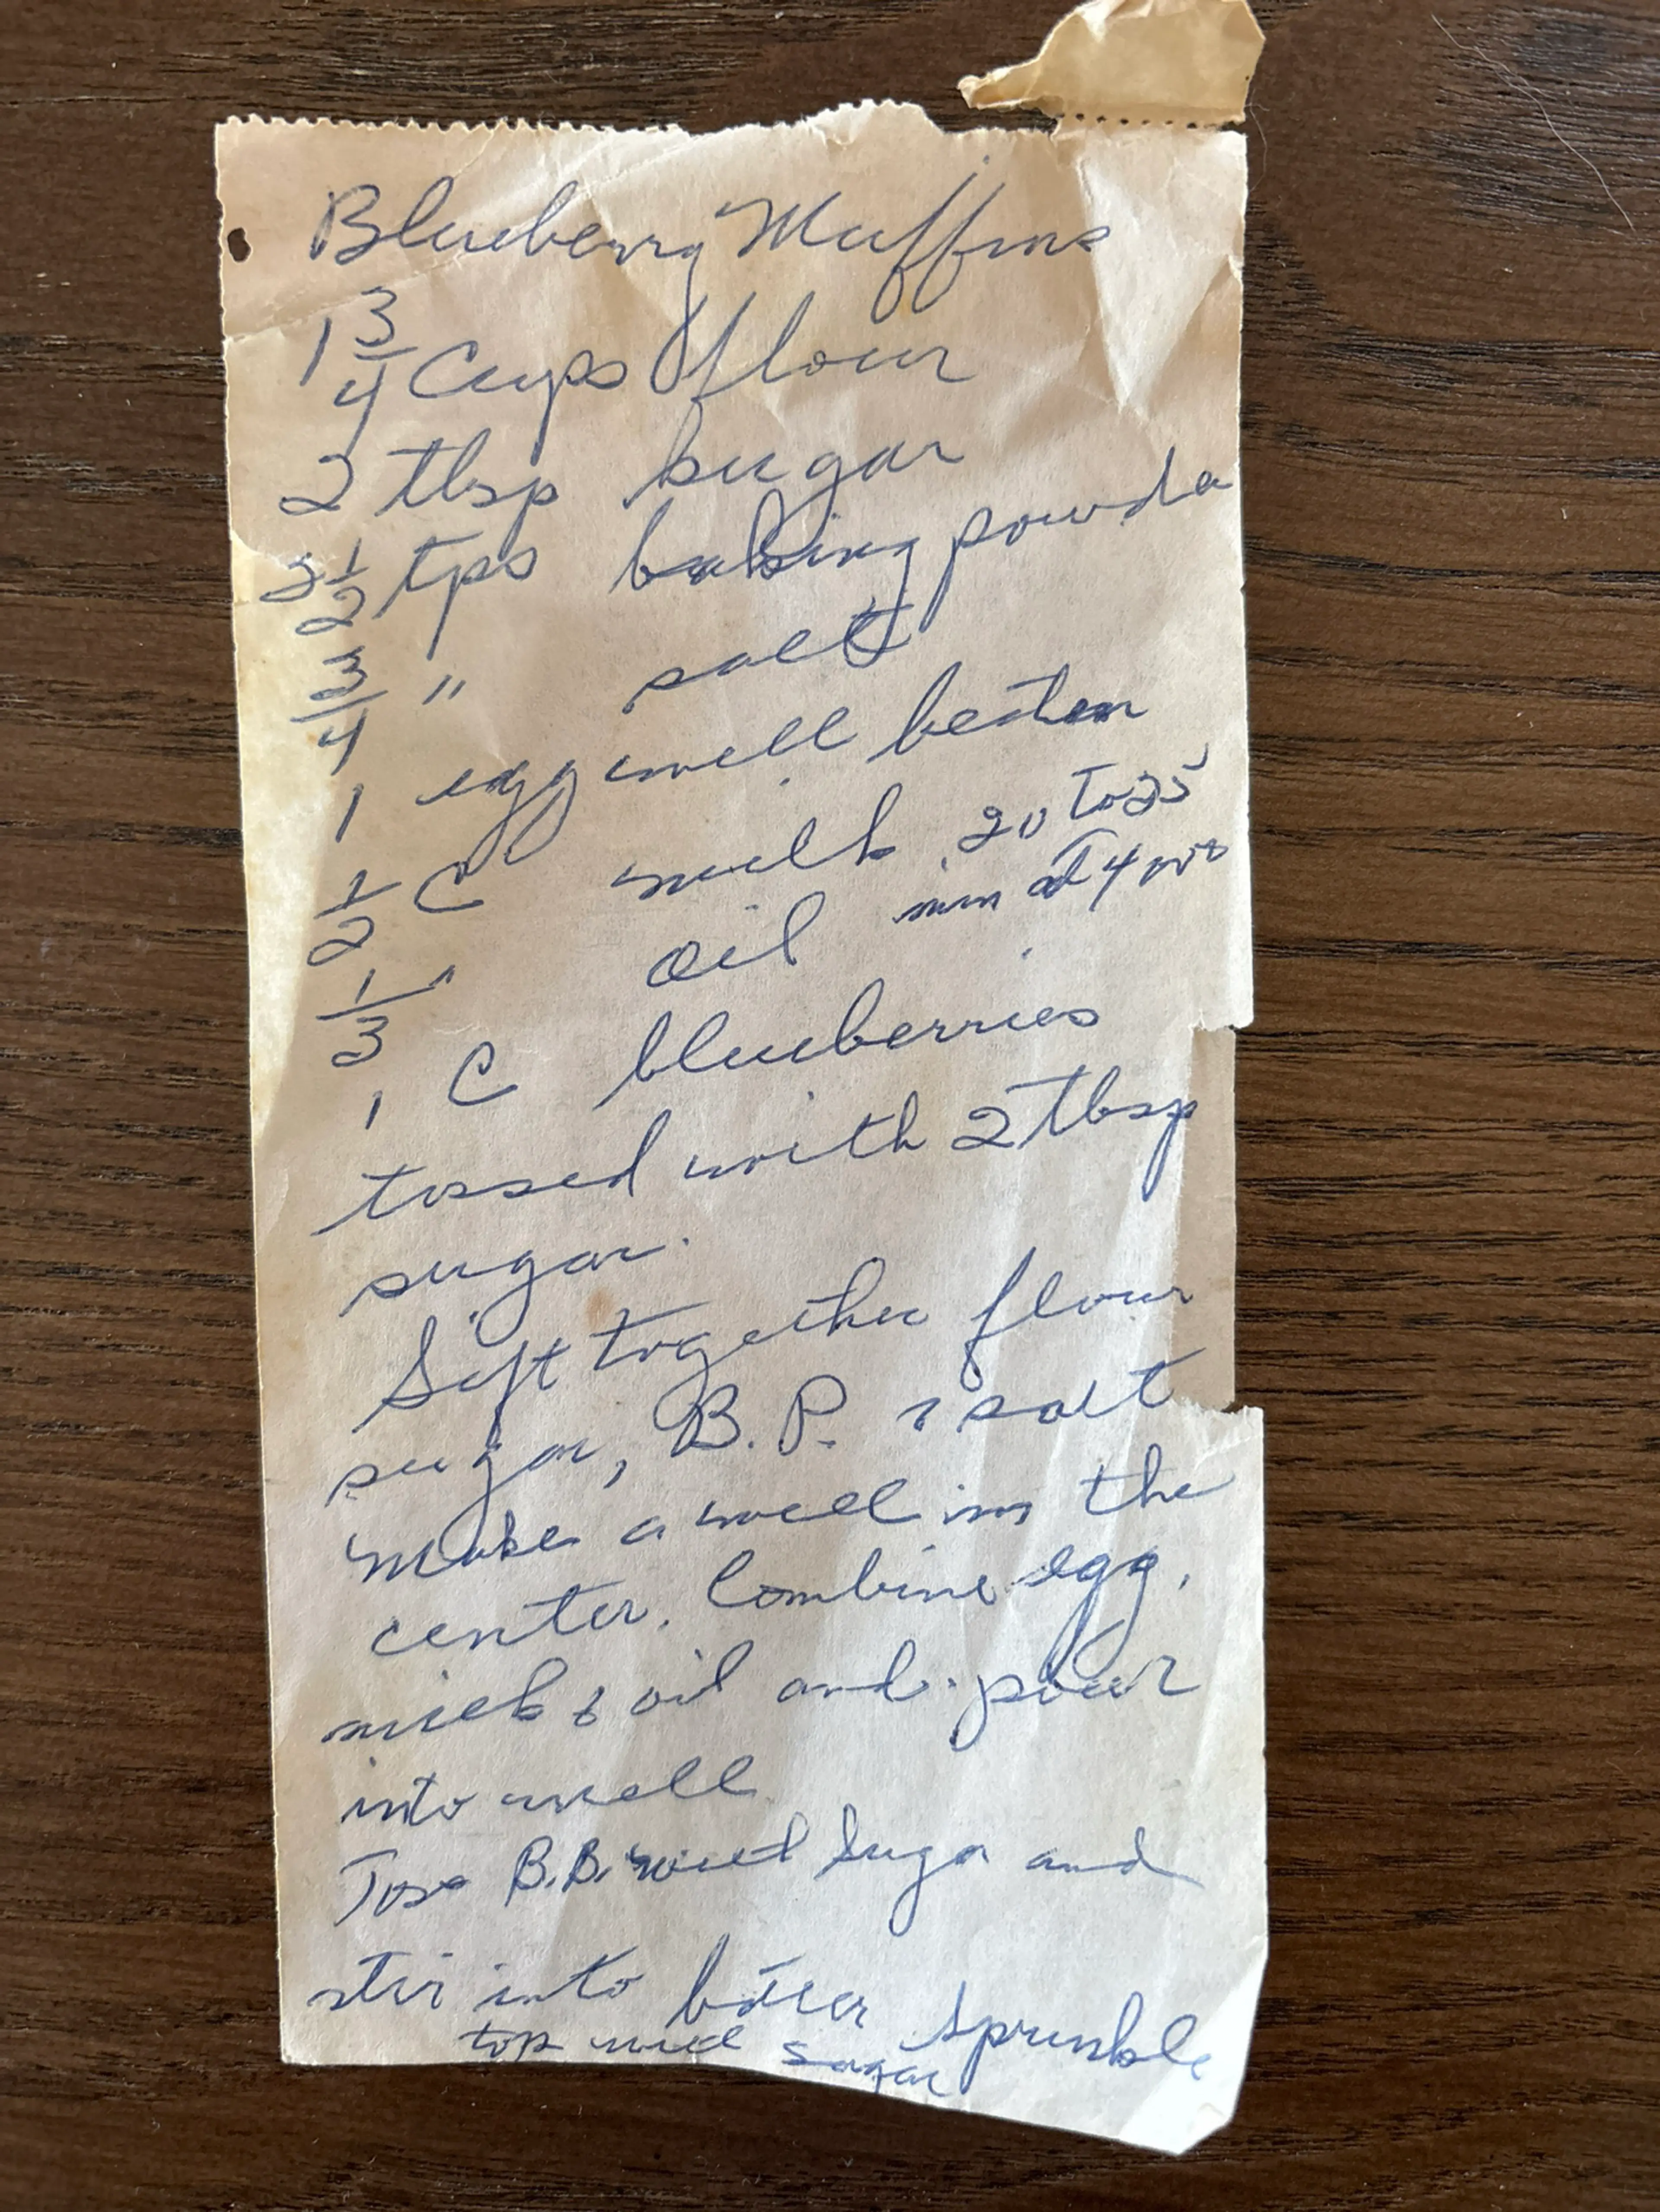 Blueberry Muffins
1 3/4 Cups flour
2 tbsp sugar
2 1/2 tps baking powda
3/4 " salt
1 egg well beaten
1/2 C milk 20 to 25
min at 400°
1/3 " oil
1 C blueberries
tossed with 2 tbsp
sugar.
Sift together flour
sugar, B.P. & salt
Make a well in the
center. Combine egg,
milk & oil and pour
into well
Toss B.B. with sugar and
stir into batter sprinkle
top with sugar